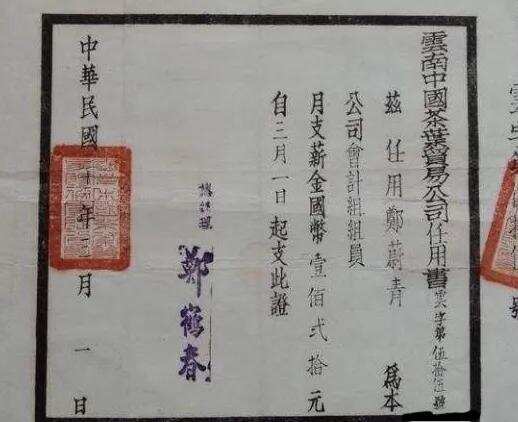 雲南中國茶葉貿易公司任用書 雲字第伍拾伍號
茲任用鄭蔚青為本
公司會計組組員
月支薪金國幣壹佰弍拾元
自三月一日起支此證
總經理
鄭鶴春
中華民國三十年三月一日